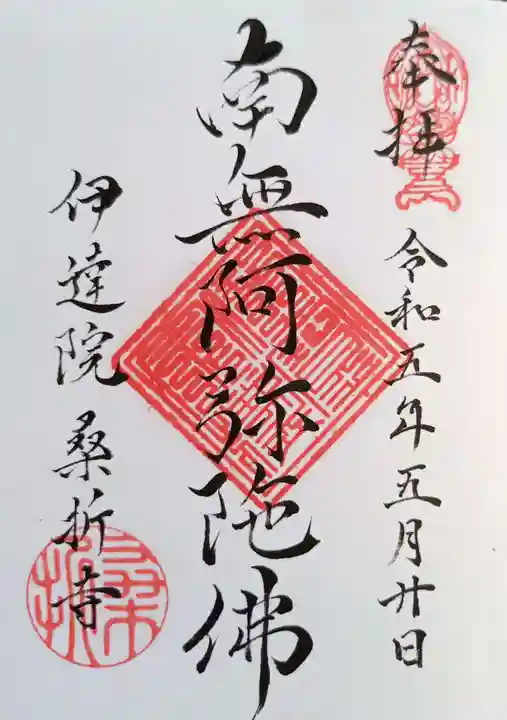 奉拝
令和五年五月廿日
南無阿弥陀佛
伊達院 桑折寺